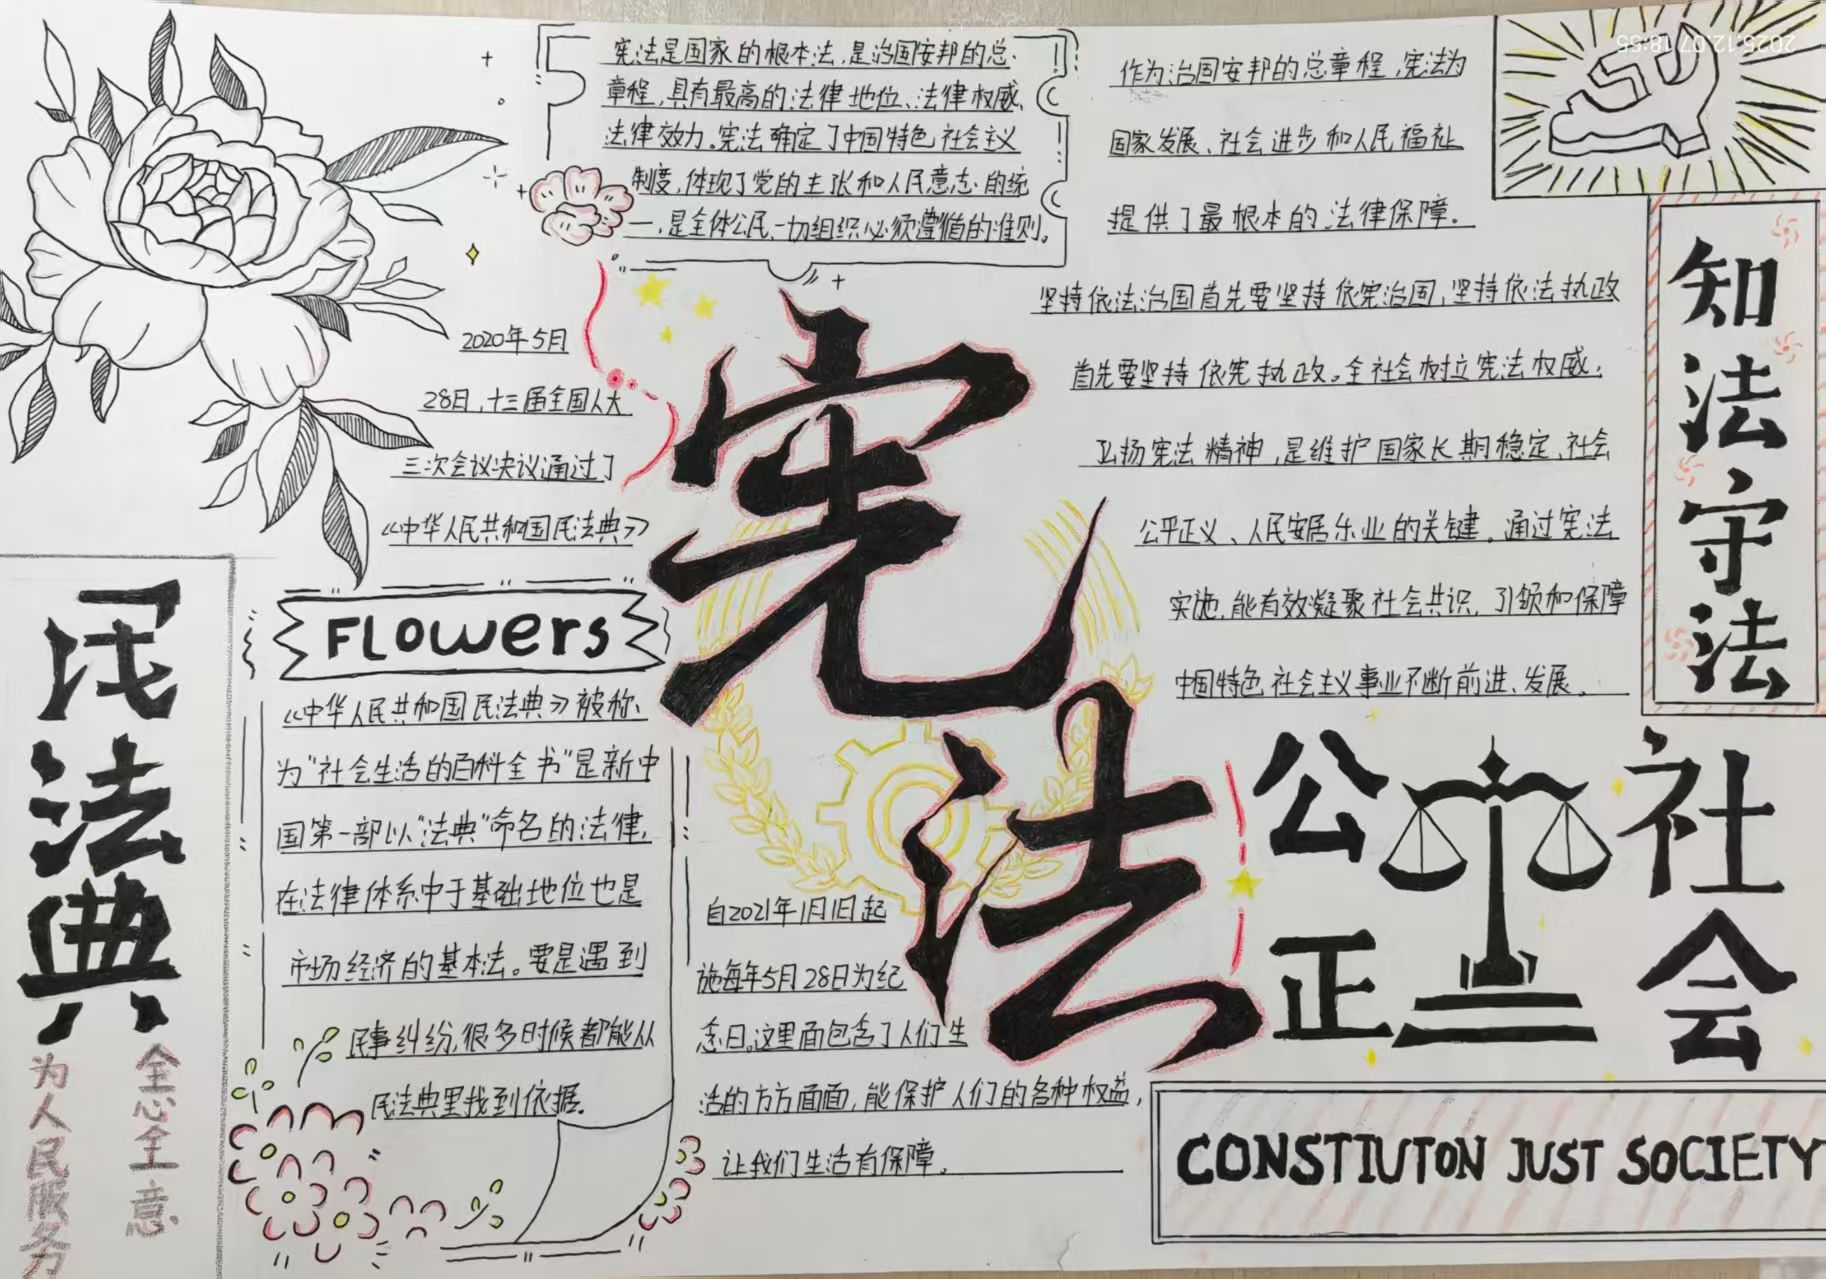 宪法是国家的根本法，是治国安邦的总
章程，具有最高的法律地位、法律权威、
法律效力。宪法确定了中国特色社会主义
制度，体现了党的主张和人民意志的统
一，是全体公民、一切组织必须遵循的准则。
作为治国安邦的总章程，宪法为
国家发展、社会进步和人民福祉
提供了最根本的法律保障。
坚持依法治国首先要坚持依宪治国，坚持依法执政
首先要坚持依宪执政。全社会树立宪法权威，
弘扬宪法精神，是维护国家长期稳定、社会
公平正义、人民安居乐业的关键。通过宪法
实施，能有效凝聚社会共识，引领和保障
中国特色社会主义事业不断前进、发展。
2025.12.07 18:55
知法守法
宪法
2020年5月
28日，十三届全国人大
三次会议决议通过了
《中华人民共和国民法典》
FLowers
《中华人民共和国民法典》被称
为"社会生活的百科全书"是新中
国第一部以"法典"命名的法律，
在法律体系中于基础地位也是
市场经济的基本法。要是遇到
民事纠纷，很多时候都能从
民法典里找到依据。
民法典
全心全意
为人民服务
自2021年1月1日起
施每年5月28日为纪
念日。这里面包含了人们生
活的方方面面，能保护人们的各种权益，
让我们生活有保障。
公正
社会
CONSTIUTON JUST SOCIETY